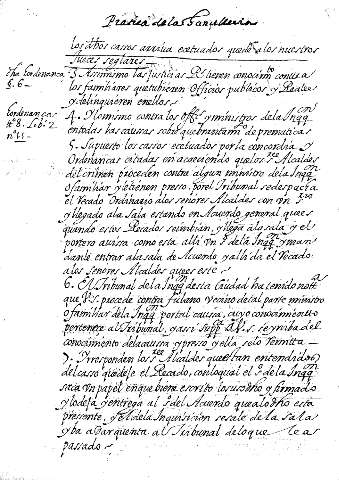 Pratica de la Chancilleria
los dhos casos arriba exetuados quedo a los nuestros
Jueces seglares
dha Cordenanca
§. 6
3. Assimismo las Justicias Rs tienen conocimto contra
los familiares que tubieren Officios publicos y Reales
y delinquieren en ellos
Cordenanca
Lib. 2
nº 11
4. Y lo mismo contra los offes y ministros de la Inqqon
en todas las causas sobre quebrantamto de prematicas
5. Supuesto los casos exetuados por la concordia y
Ordenanças citadas en acaeciendo que los Alcaldes
del crimen proceden contra algun ministro de la Inqqon
o familiar y le tienen preso por el Tribunal se despacha
el Recado Ordinario a los señores Alcaldes con un
y llegado a la Sala estando en Acuerdo general que es
quando estos Recados se imbian, y llega a la sala y el
portero avisa como esta alli un Sº de la Inqqon y man
danle entrar a la sala de Acuerdo y alli da el Recado
a los Señores Alcaldes que es este
6. El Tribunal de la Inqqon desta Ciudad ha tenido notta
que Vs. procede contra fulano vecino de tal parte ministro
o familiar de la Inqqon por tal causa, cuyo conocimiento
pertenece al Tribunal, y assi suppca a Vs. se inhiba del
conocimiento de la causa y preso y dia se lo remitta
7. Y responden los Alcaldes que estan entendidos
del caso que dese el Recado, con lo qual el sº de la Inqon
saca un papel en que biene escrito lo suso dho y firmado
y lo deja y entrega al sº del Acuerdo que a lo dho esta
presente, y el de la Inquisicion se sale de la Sala
y ba a dar quenta al Tribunal de lo que le a
passado